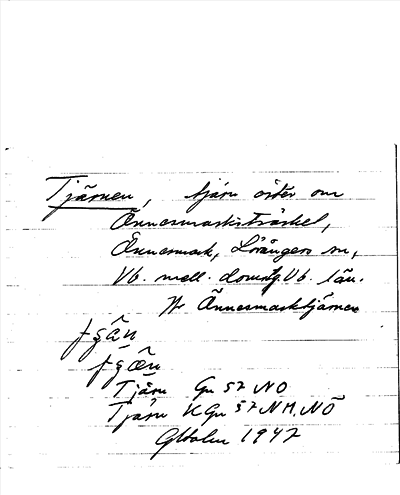 Tjärnen, tjärn öster om
Önnesmarksträsket,
Önnesmark, Lövångers sn,
Vb. mell. domsg. Vb. län.
Hr Önnesmarktjärnen
Tjärn Gk 57 NO
Tjärn KGk 57 NM, NÖ
GHolm 1947